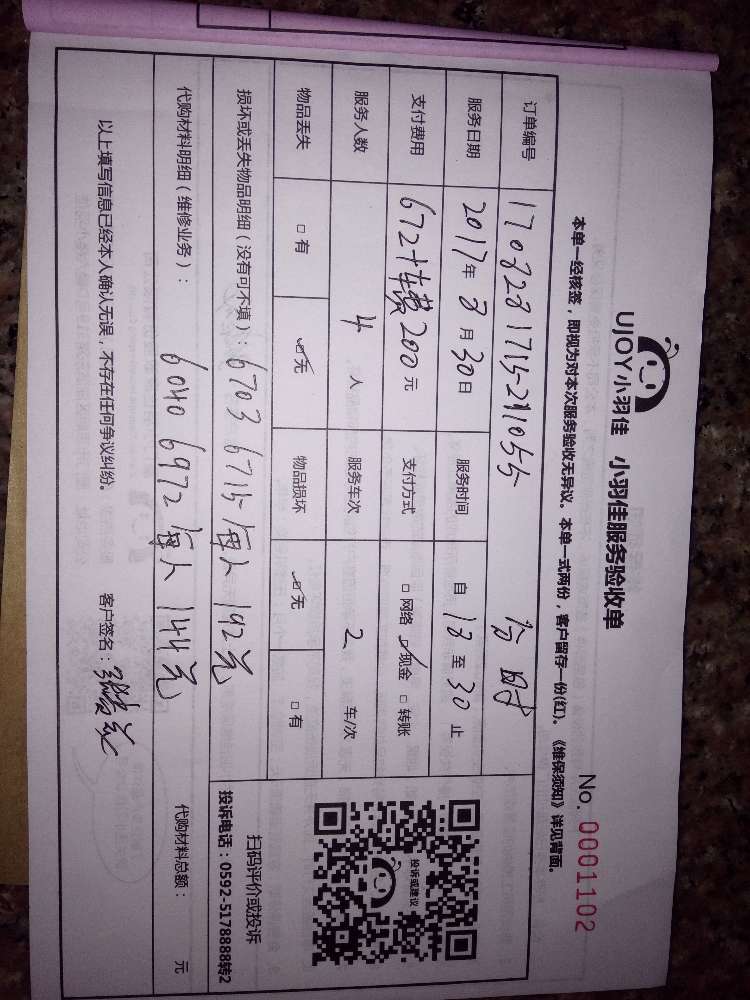 UJOY小羽佳 小羽佳服务验收单
No. 0001102
本单一经核签，即视为对本次服务验收无异议。本单一式两份，客户留存一份(红)。《维保须知》详见背面。
订单编号 1708281715241055
服务日期 2017年8月30日 服务时间 自 18 至 30 止
支付费用 672+车费200元 支付方式 □网络 ☑现金 □转账
服务人数 4 人 服务车次 2 车/次
物品丢失 □有 ☑无 物品损坏 ☑无 □有
损坏或丢失物品明细（没有可不填）: 6703 6715 每人 192元
代购材料明细（维修业务）: 6040 6972 每人 144元
代购材料总额: 元
投诉或建议
扫码评价或投诉
投诉电话：0592-5178888转2
以上填写信息已经本人确认无误，不存在任何争议纠纷。 客户签名: